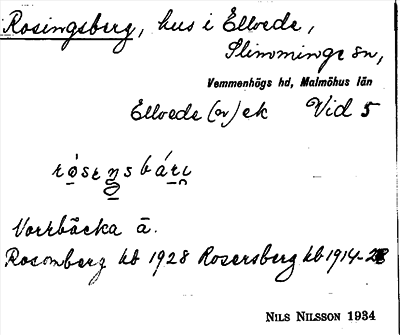 Rosingsberg, hus i Ellvede,
Slimminge sn,
Vemmenhögs hd, Malmöhus län
Ellvede (av) ek Vid 5
Norrbäcka ä.
Rosomberg kb 1928 Rosersberg kb 1914-28
NILS NILSSON 1934